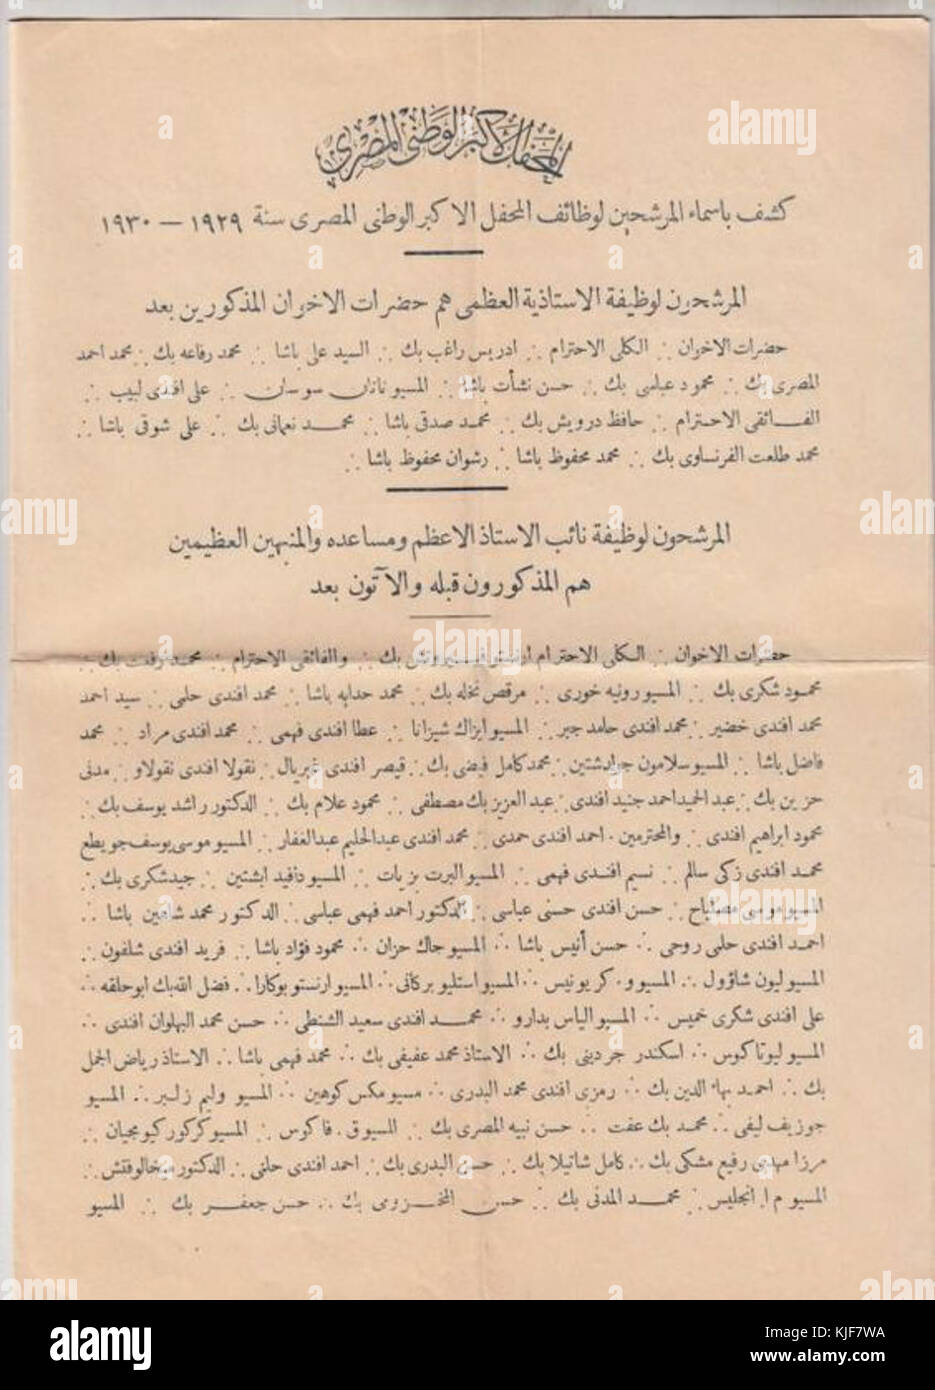 المحفل الاكبر الوطنى المصرى
كشف باسماء المرشحين لوظائف المحفل الاكبر الوطنى المصرى سنة ١٩٢٩ — ١٩٣٠
المرشحون لوظيفة الاستاذية العظمى هم حضرات الاخوان المذكورين بعد
حضرات الاخوان ∴ الكلى الاحترام ∴ ادريس راغب بك ∴ السيد على باشا ∴ محمد رفاعه بك ∴ محمد احمد
المصرى بك ∴ محمود عباسى بك ∴ حسن نشأت باشا ∴ المسيو ناتان سوسان ∴ على افندى لبيب ∴
الفائقى الاحترام ∴ حافظ درويش بك ∴ محمد صدقى باشا ∴ محمد نعمانى بك ∴ على شوقى باشا ∴
محمد طلعت الفرنساوى بك ∴ محمد محفوظ باشا ∴ رشوان محفوظ باشا ∴
المرشحون لوظيفة نائب الاستاذ الاعظم ومساعده والمنبهين العظيمين
هم المذكورون قبله والآتون بعد
حضرات الاخوان ∴ الكلى الاحترام ارنستو بك ∴ والفائقى الاحترام ∴ محمد رفعت بك ∴
محمود شكرى بك ∴ المسيو رونيه خورى ∴ مرقص نخله بك ∴ محمد حدايه باشا ∴ محمد افندى حلمى ∴ سيد احمد
محمد افندى خضير ∴ محمد افندى حامد جبر ∴ المسيو ايزاك شيزانا ∴ عطا افندى فهمى ∴ محمد افندى مراد ∴ محمد
فاضل باشا ∴ المسيو سلامون جولدشتين ∴ محمد كامل فيضى بك ∴ قيصر افندى غبريال ∴ نقولا افندى نقولاو ∴ مدنى
حزين بك ∴ عبد الحميد احمد جنيد افندى ∴ عبد العزيز بك مصطفى ∴ محمود علام بك ∴ الدكتور راشد يوسف بك ∴
محمود ابراهيم افندى ∴ والمحترمين ∴ احمد افندى حمدى ∴ محمد افندى عبد الحليم عبد الغفار ∴ المسيو موسى يوسف جويطع
محمد افندى زكى سالم ∴ نسيم افندى فهمى ∴ المسيو البرت بزيات ∴ المسيو دافيد ابشتين ∴ جيد شكرى بك ∴
المسيو موسى مصلياح ∴ حسن افندى حسنى عباسى ∴ الدكتور احمد فهمى عباسى ∴ الدكتور محمد شاهين باشا ∴
احمد افندى حلمى روحى ∴ حسن أنيس باشا ∴ المسيو جاك حزان ∴ محمود فؤاد باشا ∴ فريد افندى شلفون ∴
المسيو ليون شاؤول ∴ المسيو و. كريونيس ∴ المسيو استليو بركانى ∴ المسيو ارنستو بوكارا ∴ فضل الله بك ابو حلقه ∴
على افندى شكرى خميس ∴ المسيو الياس بدارو ∴ محمد افندى سعيد الشنطى ∴ حسن محمد البهلوان افندى ∴
المسيو ليوتاكوس ∴ اسكندر جردينى بك ∴ الاستاذ محمد عفيفى بك ∴ محمد فهمى باشا ∴ الاستاذ رياض الجمل
بك ∴ احمد بهاء الدين بك ∴ رمزى افندى محمد البدرى ∴ مسيو مكس كوهين ∴ المسيو وليم زلبر ∴ المسيو
جوزيف ليفى ∴ محمد بك عفت ∴ حسن نبيه المصرى بك ∴ المسيو ق. فاكوس ∴ المسيو كركور كيومجيان ∴
مرزا مهدى رفيع مشكى بك ∴ كامل شاتيلا بك ∴ حسن البدرى بك ∴ احمد افندى حلمى ∴ الدكتور ∴
المسيو م ا. انجليس ∴ محمد المدنى بك ∴ حسن المخزومى بك ∴ حسن جعفر بك ∴ المسيو
alamy
a
alamy
Image ID: KJF7WA
www.alamy.com